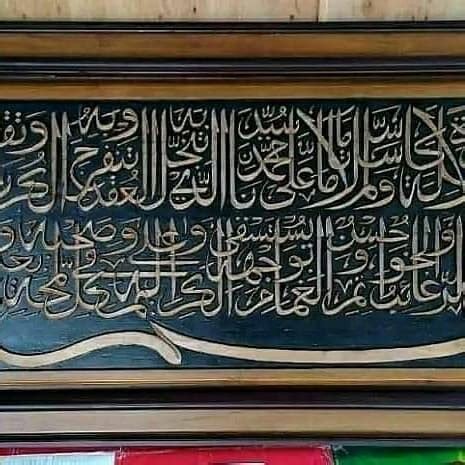 كاملة وسلم سلاما تاما على سيدنا محمد الذي تنحل به العقد وتنفرج به الكرب
الرغائب وحسن الخواتم ويستسقى الغمام بوجهه الكريم وعلى آله وصحبه في كل لمحة